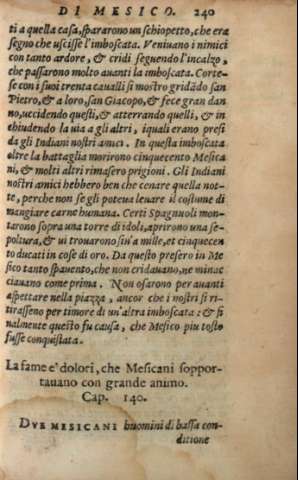 DI MESICO. 240
ti a quella casa, spararono un schiopetto, che era
segno che uscisse l'imboscata. Veniuano i nimici
con tanto ardore, & cridi seguendo l'incalzo,
che passarono molto auanti la imboscata. Corte-
se con i suoi trenta caualli si mostro gridãdo san
Pietro, & a loro, san Giacopo, & fece gran dan
no, uccidendo questi, & atterrando quelli, & in
chiudendo la uia a gli altri, iquali erano presi
da gli Indiani nostri amici. In questa imboscata
oltre la battaglia morirono cinquecento Mesica
ni, & molti altri rimasero prigioni. Gli Indiani
nostri amici hebbero ben che cenare quella not-
te, perche non se gli poteua leuare il costume di
mangiare carne humana. Certi Spagnuoli mon-
tarono sopra una torre di idoli, aprirono una se-
poltura, & ui trouarono sin'a mille, et cinquecen
to ducati in cose di oro. Da questo presero in Me
sico tanto spauento, che non cridauano, ne minac
ciauano come prima. Non osarono per auanti
aspettare nella piazza, ancor che i nostri si ri-
tirassero per timore di un'altra imboscata: & fi
nalmente questo fu causa, che Mesico piu tosto
fusse conquistata.
La fame e' dolori, che Mesicani soppor-
tauano con grande animo.
Cap. 140.
DVE MESICANI huomini di bassa con-
ditione